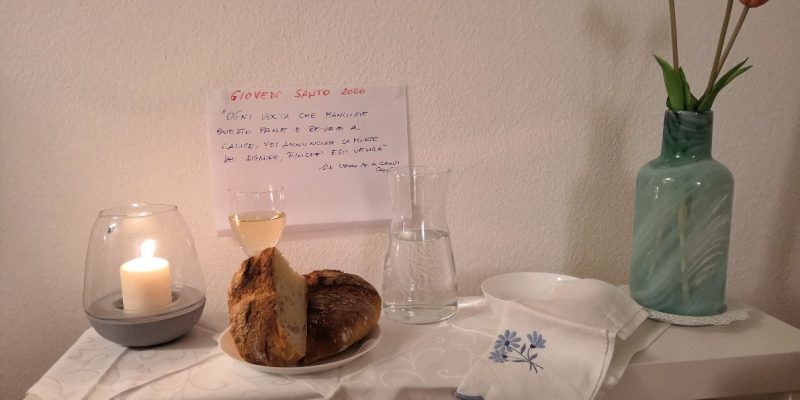 GIOVEDI' SANTO 2020
"OGNI VOLTA CHE MANGIATE
QUESTO PANE E BEVETE AL
CALICE, VOI ANNUNCIATE LA MORTE
DEL SIGNORE, FINCHE' EGLI VENGA"